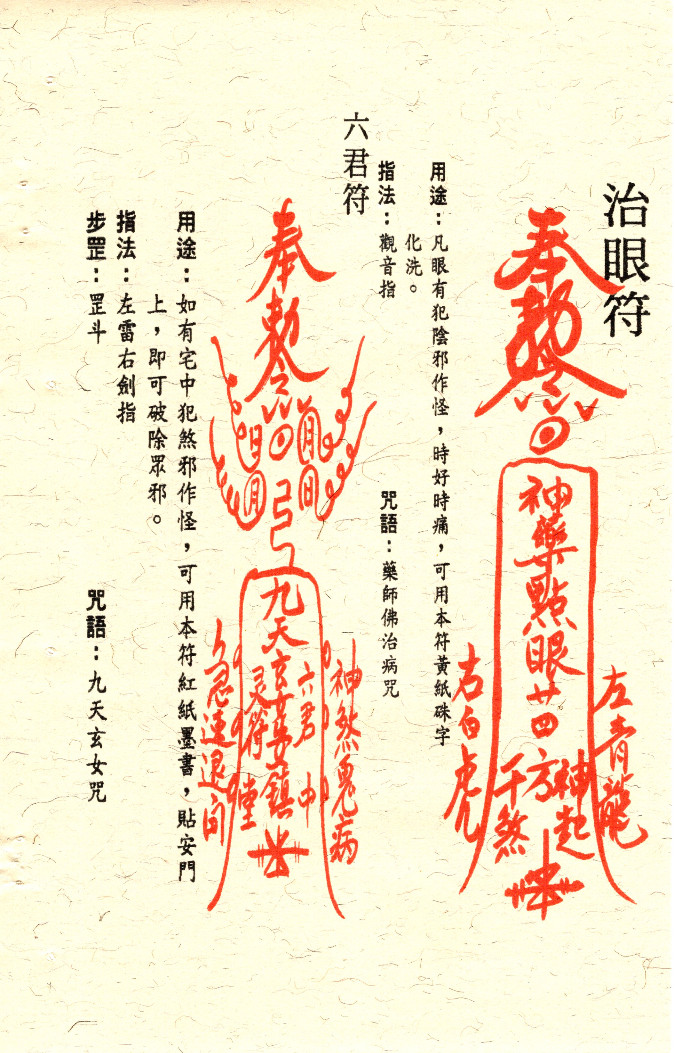 治眼符
奉勅令
神藥點眼廿四方
神起
千煞
左青龍
右白虎
用途：凡眼有犯陰邪作怪，時好時痛，可用本符黃紙硃字
化洗。
指法：觀音指
咒語：藥師佛治病咒
六君符
奉勅令
日 月
月 日
九天玄女
鎮
六君
中
灵符
堂
神煞鬼病
用途：如有宅中犯煞邪作怪，可用本符紅紙墨書，貼安門
上，即可破除眾邪。
指法：左雷右劍指
步罡：罡斗
咒語：九天玄女咒